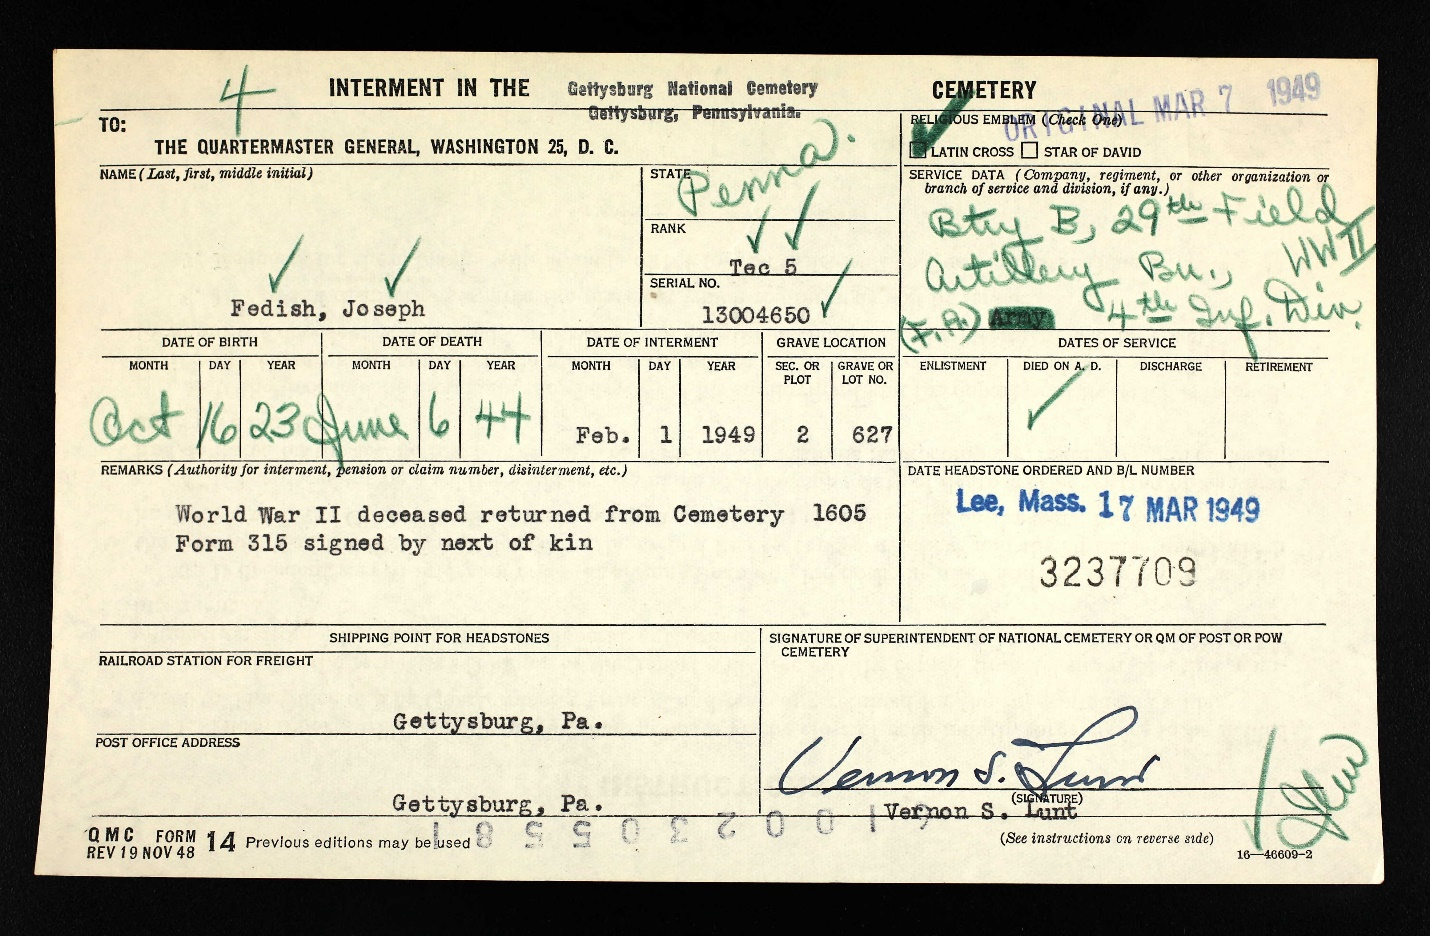 4
INTERMENT IN THE Gettysburg National Cemetery CEMETERY
Gettysburg, Pennsylvania.
ORIGINAL MAR 7 1949
TO:
THE QUARTERMASTER GENERAL, WASHINGTON 25, D. C.
RELIGIOUS EMBLEM (Check One)
LATIN CROSS STAR OF DAVID
NAME (Last, first, middle initial)
Fedish, Joseph
STATE
Penna.
RANK
Tec 5
SERIAL NO.
13004650
SERVICE DATA (Company, regiment, or other organization or
branch of service and division, if any.)
Btry B, 29th Field
Artillery Bn., WW II
(F.A.) Army 4th Inf. Div.
DATE OF BIRTH DATE OF DEATH DATE OF INTERMENT GRAVE LOCATION DATES OF SERVICE
MONTH DAY YEAR MONTH DAY YEAR MONTH DAY YEAR SEC. OR PLOT GRAVE OR LOT NO. ENLISTMENT DIED ON A. D. DISCHARGE RETIREMENT
Oct 16 23 June 6 44 Feb. 1 1949 2 627
REMARKS (Authority for interment, pension or claim number, disinterment, etc.)
World War II deceased returned from Cemetery 1605
Form 315 signed by next of kin
DATE HEADSTONE ORDERED AND B/L NUMBER
Lee, Mass. 17 MAR 1949
3237709
SHIPPING POINT FOR HEADSTONES
RAILROAD STATION FOR FREIGHT
Gettysburg, Pa.
POST OFFICE ADDRESS
Gettysburg, Pa.
SIGNATURE OF SUPERINTENDENT OF NATIONAL CEMETERY OR QM OF POST OR POW
CEMETERY
Vernon S. Lunt
(SIGNATURE)
Vernon S. Lunt
QMC FORM 14 Previous editions may be used
REV 19 NOV 48
(See instructions on reverse side)
16—46609-2